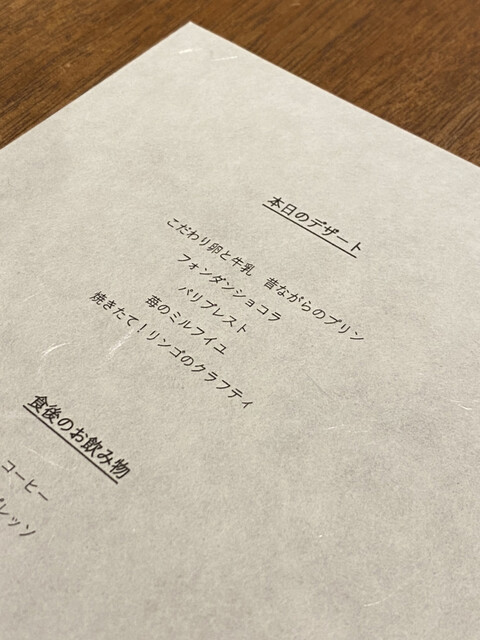 本日のデザート
こだわり卵と牛乳　昔ながらのプリン
フォンダンショコラ
パリブレスト
苺のミルフイユ
焼きたて！リンゴのクラフティ
食後のお飲み物
コーヒー
レッソ